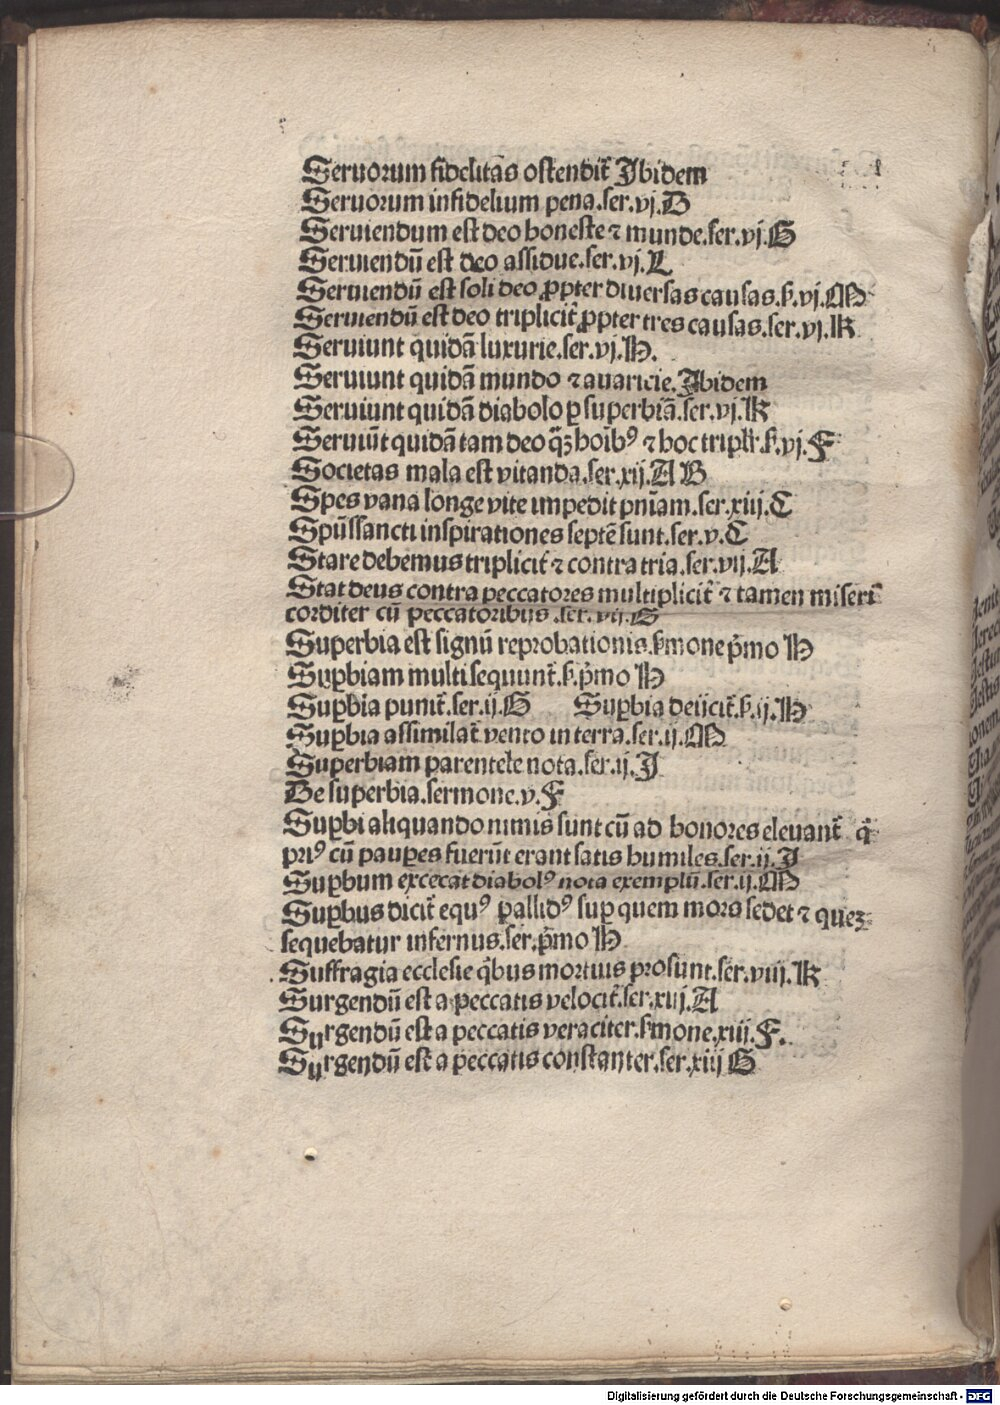 Seruorum fidelitas ostendit᷑ Ibidem
Seruorum infidelium pena.ser.vj.D
Seruiendum est deo honeste ⁊ munde.ser.vj.G
Seruiendū est deo assidue.ser.vj.L
Seruiendū est soli deo ꝓpter diuersas causas.s̄.vj.M
Seruiendū est deo triplicit᷑ ꝓpter tres causas.ser.vj.K
Seruiunt quidā luxurie.ser.vj.H.
Seruiunt quidā mundo ⁊ auaricie.Ibidem
Seruiunt quidā diabolo ꝑ superbiā.ser.vj.K
Seruiūt quidā tam deo q̄ꝫ hoībꝰ ⁊ hoc triplr̄.s̄.vj.F
Societas mala est vitanda.ser.xij.A B
Spes vana longe vite impedit pnīam.ser.xiij.C
Spūssancti inspirationes septē sunt.ser.v.C
Stare debemus triplicit᷑ ⁊ contra tria.ser.vij.A
Stat deus contra peccatores multiplicit᷑ ⁊ tamen miseri
corditer cū peccatoribus .ser.vij.G
Superbia est signū reprobationis.s̄mone p̄mo H
Suꝑbiam multi sequunt᷑.s̄.p̄mo H
Suꝑbia punit᷑.ser.ij.G Suꝑbia deijcit᷑.s̄.ij.H
Suꝑbia assimilat᷑ vento in terra.ser.ij.M
Superbiam parentele nota.ser.ij.I
De superbia.sermone.v.F
Suꝑbi aliquando nimis sunt cū ad honores eleuant᷑ q̄
priꝰ cū pauꝑes fuerūt erant satis humiles.ser.ij.I
Suꝑbum excecat diabolꝰ nota exemplū.ser.ij.M
Suꝑbus dicit᷑ equꝰ pallidꝰ suꝑ quem mors sedet ⁊ queꝫ
sequebatur infernus.ser.p̄mo H
Suffragia ecclesie q̄bus mortuis prosunt.ser.viij.K
Surgendū est a peccatis velocit᷑.ser.xiij.A
Surgendū est a peccatis veraciter.s̄mone.xiij.F.
Surgendū est a peccatis constanter.ser.xiij G
Digitalisierung gefördert durch die Deutsche Forschungsgemeinschaft - DFG